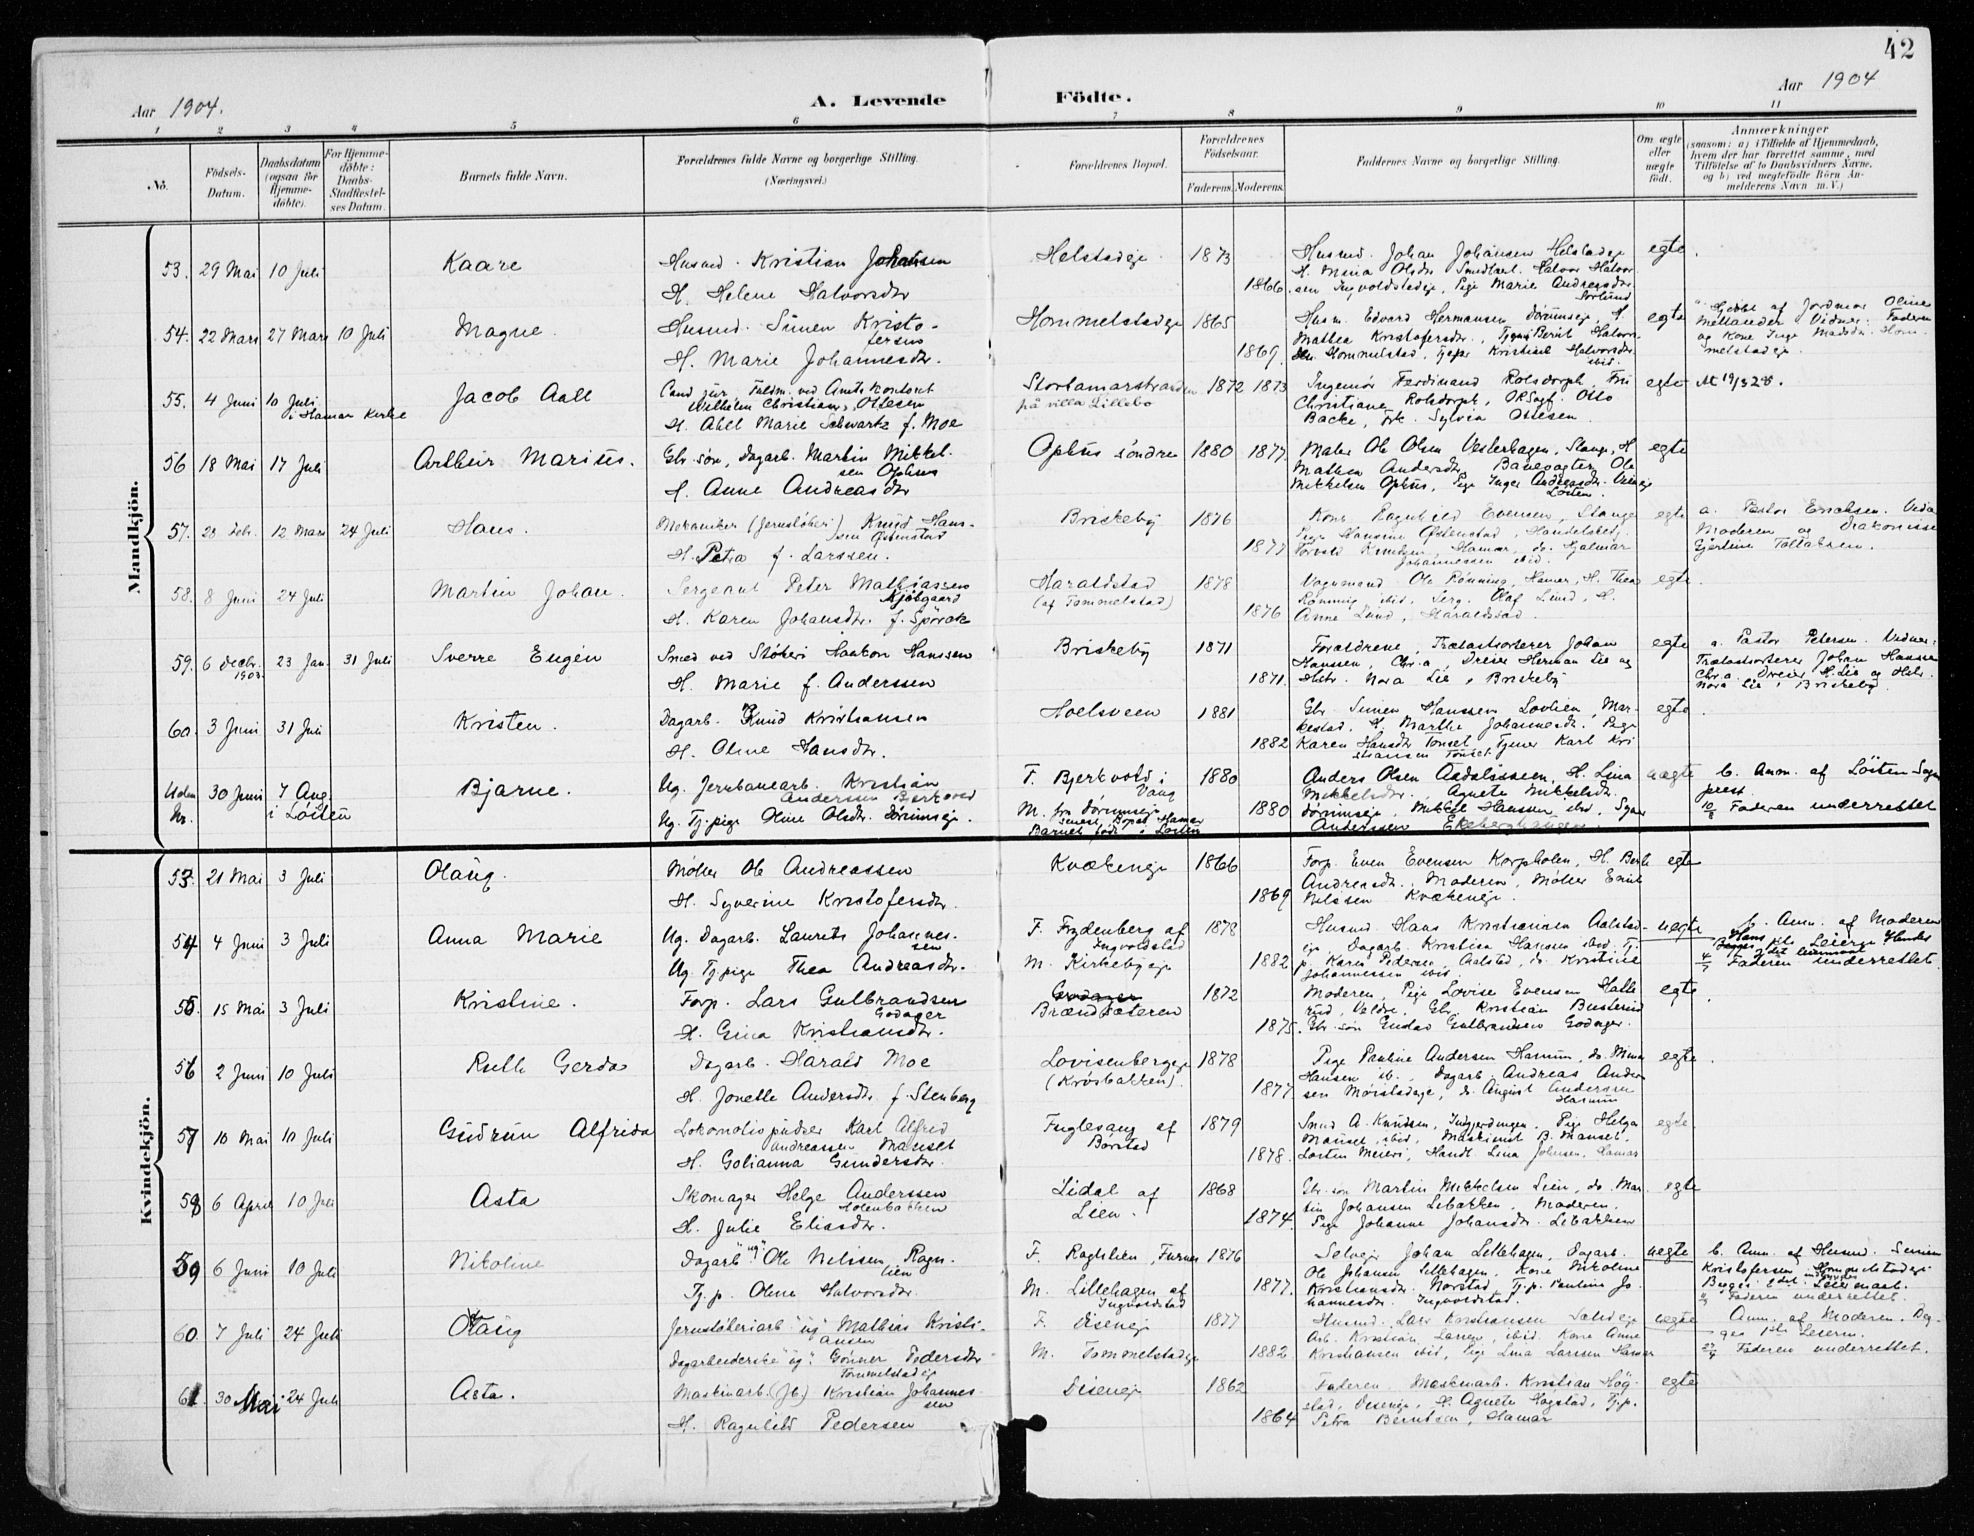 42
Aar 1904.
A. Levende Födte.
Aar 1904
1 2 3 4 5 6 7 8 9 10 11
No.
Födsels-Datum.
Daabsdatum (ogsaa for Hjemme-döbte).
For Hjemme-döbte: Daabs-Stadfæstelses Datum.
Barnets fulde Navn.
Forældrenes fulde Navne og borgerlige Stilling.
(Næringsvei.)
Forældrenes Bopæl.
Forældrenes Födselsaar.
Faderens. Moderens.
Faddernes Navne og borgerlige Stilling.
Om ægte eller uægte födt.
Anmærkninger
(saasom: a) i Tilfælde af Hjemmedaab, hvem der har forrettet samme, med Tilföielse af to Daabsvidners Navne, og b) ved uægtefödte Börn Anmelderens Navn m. V.)
Mandkjön.
53. 29 Mai 10 Juli Kaare
Husmd. Kristian Johansen
H. Helene Halvorsdtr
Helstadeje 1873
1866
Husmd. Johan Johansen Helstadeje
H. Mina Olsdtr Halvor Halvorsen Ingvoldstadeje, Pige Marie Andreasdtr
egte.
54. 22 Mars 27 Mars 10 Juli Magne.
Husmd. Simen Kristofersen
H. Marie Johannesdtr.
Hommelstadeje 1865
1869
Husm. Edvard Hermansen Dörumseje, H.
Mathea Kristofersdtr., Berit Halvorsen Hommelstad, Kristine Halvorsdtr ibid.
egte
Hjdbt af Jordmor Oline Mellander Vidner: Faderen og Kone Inge Madsdtr. Hommelstadeje.
55. 4 Juni 10 Juli i Hamar Kirke Jacob Aall
Cand jur. Fuldm. ved Amtskontoret
Wilhelm Christian Ottesen
H. Abel Marie Schwartz f. Moe
Storhamarstranden på villa Lillebo 1872 1873
Ingeniör Ferdinand Rolsdorph, Fru
Christiane Rolsdorph, ORSagf. Otto
Backe, Frk. Sylvia Ottesen
egte
Att 19/3 28.
56 18 Mai 17 Juli Arthur Marius.
Gbr. sön, dagarb. Martin Mikkelsen Ophus
H. Anne Andreasdtr
Ophus söndre 1880 1877
Maler Ole Olsen Vesterhagen, Stange, H
Mathea Andersdtr, Banevogter Ole
Mikkelsen Ophus, Pige Inger Andreasdtr.
Löiten.
egte
57. 28 Febr. 12 Mars 24 Juli Hans.
Mekaniker (Jernstöberi) Knud Hansen Östenstad
H. Petra f. Larssen.
Briskeby 1876
1877
Kone Ragnhild Evensen, Stange
Pige Hansine Östenstad, Handelsbetj.
Torvald Knudsen, Hamar, do. Hjalmar
Johannessen ibid.
egte
a. Pastor Ericksen. Vidn. Moderen og Diakonisse
Gjertine Tollaksen.
58. 8 Juni 24 Juli Martin Johan.
Sergeant Peter Mathiassen
Kjölgaard
H. Karen Johansdtr. f. Spörck
Haraldstad
(af Tommelstad)
1878
1876
Vognmand Ole Rönning, Hamar, H. Thea
Rönning ibid, Serg. Olaf Lund, H.
Anne Lund, Haraldstad.
egte.
59. 6 Decbr. 1903. 23 Jan. 31 Juli Sverre Eugén
Smed ved Stöberi Haakon Hanssen
H. Marie f. Anderssen
Briskeby 1871
1871
Forældrene, Trælastsorterer Johan
Hanssen, Chr.a, Dreier Herman Lie og
Hstr. Nora Lie, Briskeby
egte
a. Pastor Petersen. Vidner:
Trælastsorterer Johan Hanssen
Chr.a. Dreier H. Lie og Hstr.
Nora Lie, Briskeby.
60. 3 Juni 31 Juli Kristen.
Dagarb. Knud Kristiansen
H. Oline Hansdtr.
Hoelsveen 1881
1882
Gbr. Simen Hanssen Lovlien, Markestad, H. Marthe Johannesdtr. Pige
Karen Hansdtr Tönset, Tjener Karl Kristiansen Tönset.
egte.
Uden Nr. 30 Juni 7 Aug. i Löiten Bjarne.
Ug. Jernbanearb. Kristian
Andersen Berkvold
Ug. Tj.pige Oline Olsdr. Dörumseje.
F. Bjerkvold i Vang 1880
M. fra Dörumseje
senest Bopæl Hamar
Barnet födt i Löiten
1880
Anders Olsen Aadalsseen, H. Lina
Mikkelsdtr., Agnete Mikkelsdtr.
Dörumseje, Mikkel Hansen, ibd,
Anderssen Ekeberghaugen
uægte
b. Anm. af Löiten Sognepræst.
10/8 Faderen underrettet
Kvindekjön.
53. 21 Mai 3 Juli Olaug.
Möller Ole Andreassen
H. Syverine Kristofersdtr.
Kvækeneje 1866
1869
Forp. Even Evensen Korpholen, H. Berte
Andreasdtr. Moderen, Möller Emil
Nilssen Kvækeneje.
egte
54 4 Juni 3 Juli Anna Marie
Ug. Dagarb. Laurits Johannessen
Ug. Tj.pige Thea Andreasdtr.
F. Frydenberg af Ingvoldstad 1878
M. Kirkebyeje 1882
Husmd Hans Kristiansen Aalstadeje, Dagarb. Kristian Hansen ibid. Tj.
p. Karen Pedersen, Aalstad, do. Kristine
Johannessen ibid.
uegte
b. Anm. af Moderen
4/7 Faderen underrettet.
55. 15 Mai 3 Juli Kristine.
Forp. Lars Gulbrandsen
Godager
H. Gina Kristiansdtr.
Godager
Brændsæteren 1872
1875
Moderen, Pige Lovise Evensen Hallerud, Valdre, Gbr. Kristian Busterud
Gbr. sön Gustav Gulbrandsen Godager.
egte.
56 2 Juni 10 Juli Ruth Gerda
Dagarb. Harald Moe
H. Jonette Andersdtr. f. Stenberg
Lovisenbergeje
(Krösbakken).
1878
1877
Pige Pauline Andersen Hamar, do. Mina
Hansen ib., Dagarb. Andreas Andersen, do. August Andersen
Hamar
egte.
57 10 Mai 10 Juli Gudrun Alfrida
Lokomotivpudser Karl Alfred
Andreassen Mauset
H. Golianna Gundersdtr.
Fuglesang af
Börstad
1879
1878
Smed A. Knudsen, Pige Helga
Mauset, ibid, Maskinist B. Mauset,
Löiten Meieri, Handl. Lina Johnsen, Hamar
egte.
58 6 April 10 Juli Asta
Skomager Helge Anderssen
H. Julie Eliasdtr.
Lidal af
Lien.
1868
1874
Gbr. sön Martin Mikkelsen Lien, do. Martin Johansen Lebakken, Moderen,
Pige Johanne Johansdtr. Lebakken
egte
59 6 Juni 10 Juli Nikoline
Dagarb "ug" Ole Nilssen Ragnlien
Tj. p. Oline Halvorsdtr.
F. Raglilien, Furnes 1876
M. Lillehagen af Ingvoldstad 1877
Selvej. Johan Lillehagen, Dagarb.
Ole Johansen Lillehagen, Kone Nikoline
Kristiansdtr. Norstad, Tj. p. Pauline Johannesdtr. Ingvoldstad.
uegte
b. Anm. af Husmd. Simen
Kristofersen, Hommelstadeje
Begges Leiermaal.
Faderen underrettet.
60 7 Juli 24 Juli Olaug
Jernstöberiarb. "ug" Mathias Kristiansen
Dagarbeiderske "ug." Gönner Pedersdtr
Tommelstadeje
F. Diseneje 1877
M. Tommelstadeje 1882
Husmd. Lars Kristiansen
Arb. Kristian Larsen, ibid, Kone Anne
Kristiansen ibid, Pige Lina Larsen Hamar
uegte
Anm. af Moderen. Begges 1ste Leierm.
27/7 Faderen underrettet.
61 30 Mai 24 Juli Asta.
Maskinarb. (Jb.) Kristian Johannessen
H. Ragnhild Pedersen
Diseneje 1862
1864
Faderen, Maskinarb. Kristian Högstad, Diseneje, H. Agnete Högstad, Tj. p.
Petra Berntsen, Hamar
egte